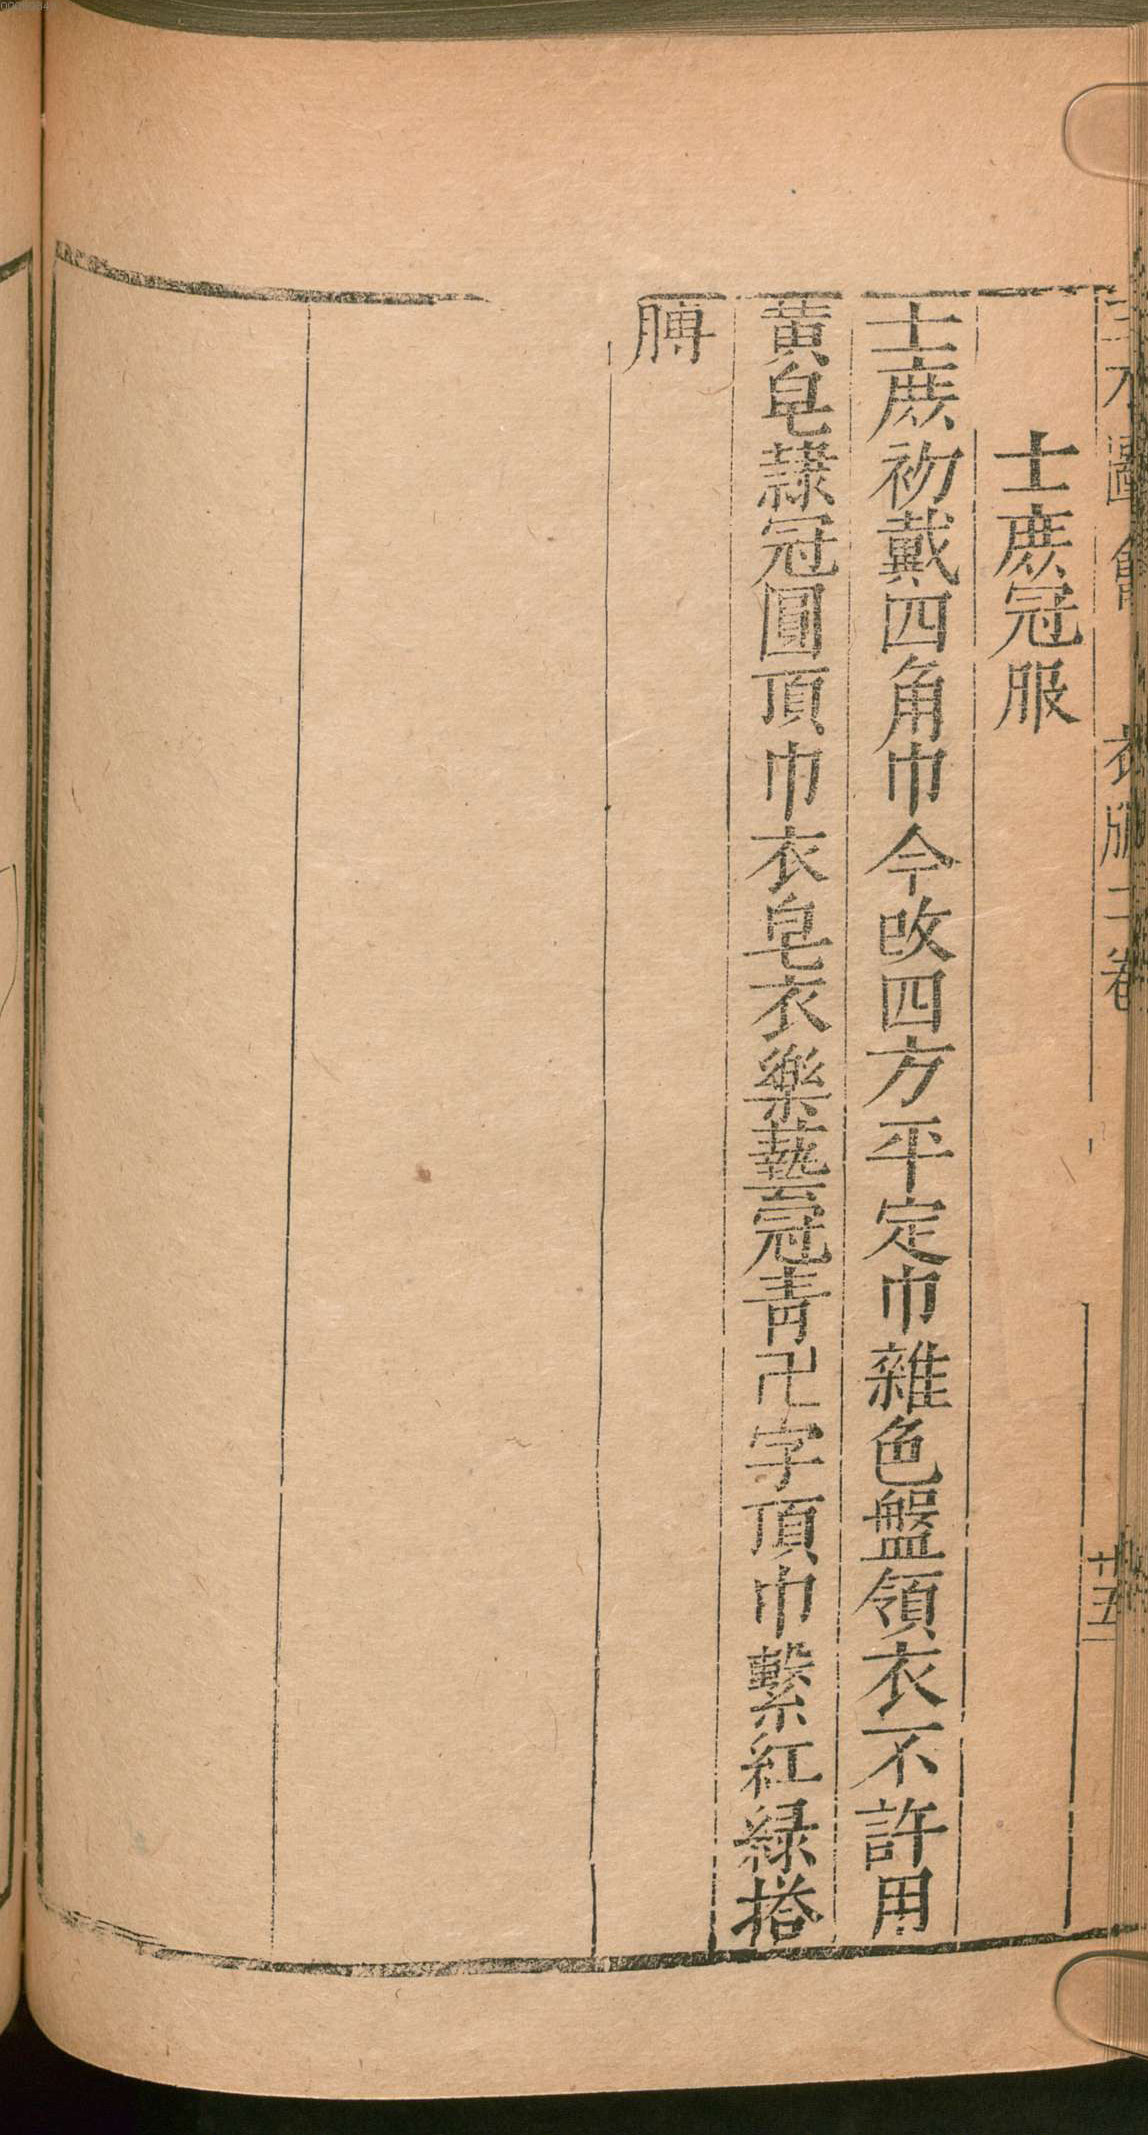 三才圖會 衣服二卷 廿五
士庶冠服
士庶初戴四角巾今改四方平定巾雜色盤領衣不許用
黃皂隸冠圓頂巾衣皂衣樂藝冠青卍字頂巾繫紅綠搭
膊